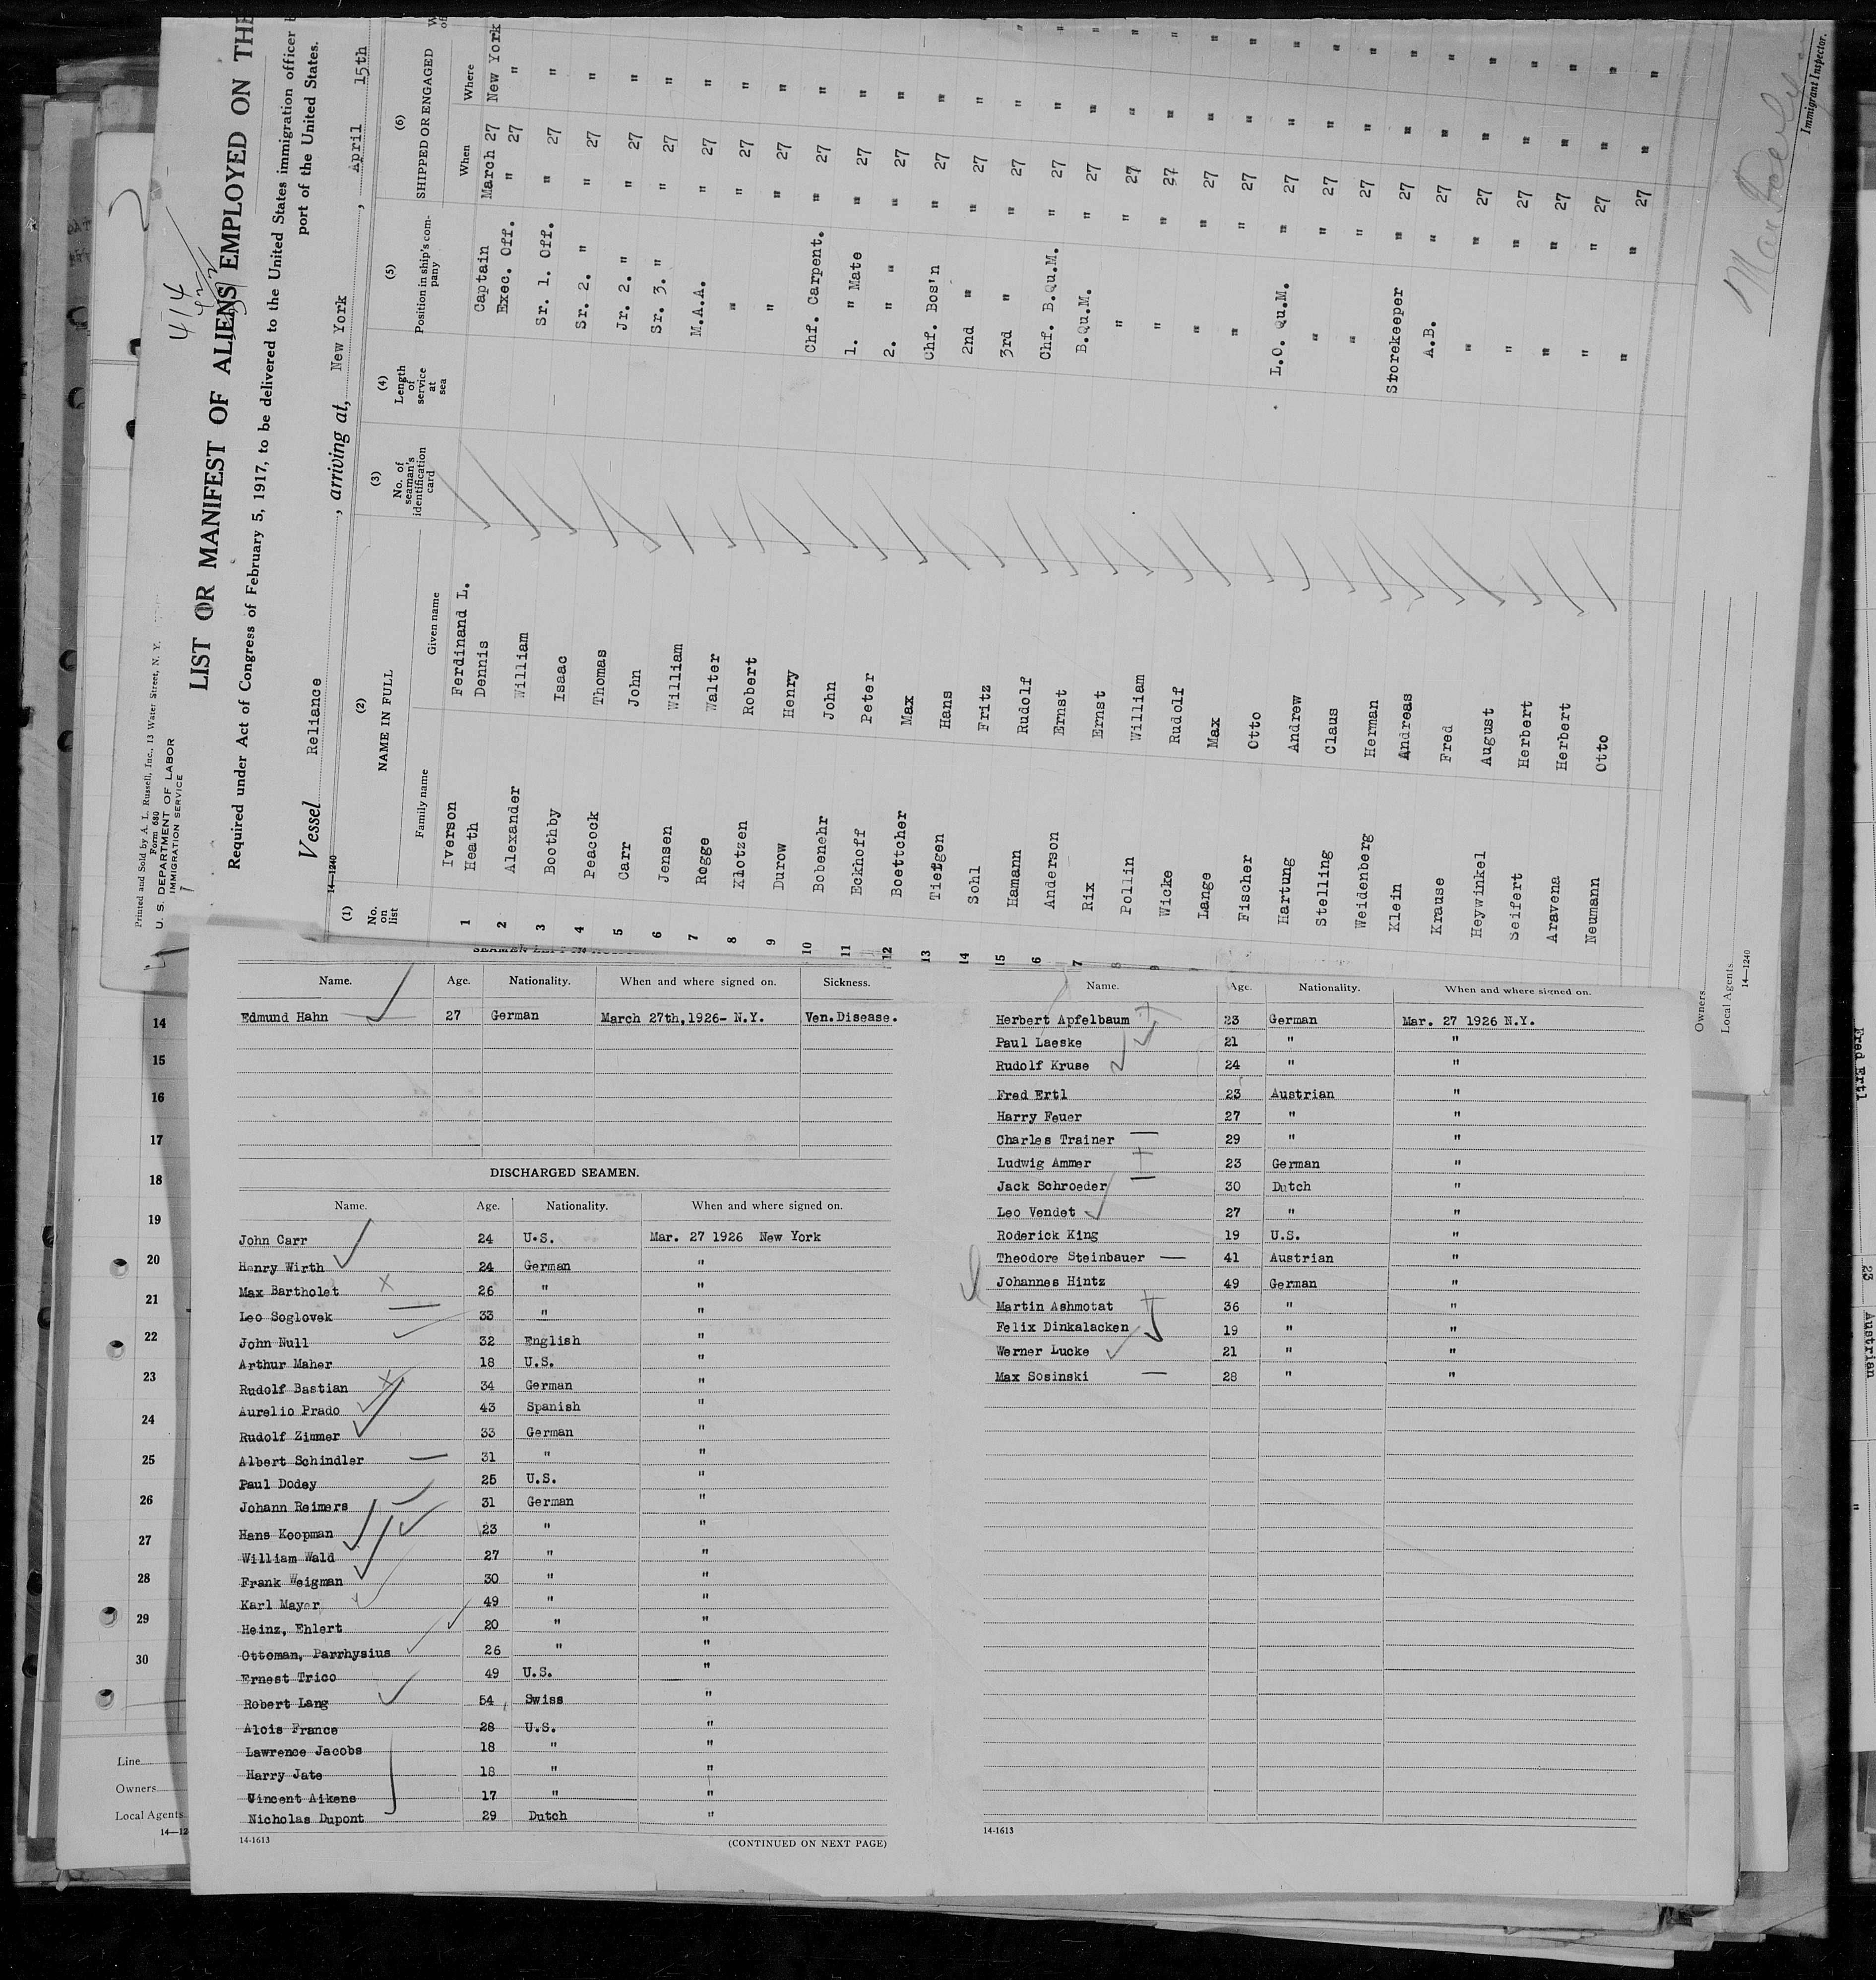 414
Printed and Sold by A. L. Russell, Inc., 13 Water Street, N. Y.
Form 680
U. S. DEPARTMENT OF LABOR
IMMIGRATION SERVICE
LIST OR MANIFEST OF ALIENS EMPLOYED ON THE
Required under Act of Congress of February 5, 1917, to be delivered to the United States immigration officer
port of the United States.
Vessel Reliance, arriving at, New York, April 15th
14—1240
(1) (2) (3) (4) (5) (6)
No. on list NAME IN FULL No. of seaman's identification card Length of service at sea Position in ship's company SHIPPED OR ENGAGED
Family name Given name When Where
1 Iverson Ferdinand L. Captain March 27 New York
2 Heath Dennis Exec. Off. " 27 "
3 Alexander William Sr. 1. Off. " 27 "
4 Boothby Isaac Sr. 2. " " 27 "
5 Peacock Thomas Jr. 2. " " 27 "
6 Carr John Sr. 3. " " 27 "
7 Jensen William M.A.A. " 27 "
8 Rogge Walter " " 27 "
9 Klotzen Robert " " 27 "
10 Durow Henry Chf. Carpent. " 27 "
11 Bobenehr John 1. " Mate " 27 "
12 Eckhoff Peter 2. " " " 27 "
13 Boettcher Max Chf. Bos'n " 27 "
14 Tietgen Hans 2nd " " 27 "
15 Sohl Fritz 3rd " " 27 "
6 Hamann Rudolf Chf. B.Qu.M. " 27 "
7 Anderson Ernst B.Qu.M. " 27 "
8 Rix Ernst " " 27 "
9 Pollin William " " 27 "
Wicke Rudolf " " 27 "
Lange Max " " 27 "
Fischer Otto L.O. Qu.M. " 27 "
Hartung Andrew " " 27 "
Stelling Claus " " 27 "
Weidenberg Herman Storekeeper " 27 "
Klein Andreas A.B. " 27 "
Krause Fred " " 27 "
Heywinkel August " " 27 "
Seifert Herbert " " 27 "
Aravena Herbert " " 27 "
Neumann Otto " " 27 "
Immigrant Inspector.
Owners
Local Agents
14—1240
Name. Age. Nationality. When and where signed on. Sickness.
Edmund Hahn 27 German March 27th,1926- N.Y. Ven.Disease.
DISCHARGED SEAMEN.
Name. Age. Nationality. When and where signed on.
John Carr 24 U.S. Mar. 27 1926 New York
Henry Wirth 24 German "
Max Bartholet 26 " "
Leo Soglovek 33 " "
John Null 32 English "
Arthur Maher 18 U.S. "
Rudolf Bastian 34 German "
Aurelio Prado 43 Spanish "
Rudolf Zimmer 33 German "
Albert Schindler 31 " "
Paul Dodey 25 U.S. "
Johann Reimers 31 German "
Hans Koopman 23 " "
William Wald 27 " "
Frank Weigman 30 " "
Karl Mayer 49 " "
Heinz, Ehlert 20 " "
Ottoman, Parrhysius 26 " "
Ernest Trico 49 U.S. "
Robert Lang 54 Swiss "
Alois France 28 U.S. "
Lawrence Jacobs 18 " "
Harry Jate 18 " "
Vincent Aikens 17 " "
Nicholas Dupont 29 Dutch "
14-1613
(CONTINUED ON NEXT PAGE)
Name. Age. Nationality. When and where signed on.
Herbert Apfelbaum 23 German Mar. 27 1926 N.Y.
Paul Laeske 21 " "
Rudolf Kruse 24 " "
Fred Ertl 23 Austrian "
Harry Feuer 27 " "
Charles Trainer 29 " "
Ludwig Ammer 23 German "
Jack Schroeder 30 Dutch "
Leo Vendet 27 " "
Roderick King 19 U.S. "
Theodore Steinbauer 41 Austrian "
Johannes Hintz 49 German "
Martin Ashmotat 36 " "
Felix Dinkalacken 19 " "
Werner Lucke 21 " "
Max Sosinski 28 " "
14-1613
14
15
16
17
18
19
20
21
22
23
24
25
26
27
28
29
30
Line
Owners
Local Agents
14—12
Fred Ertl 23 Austrian "